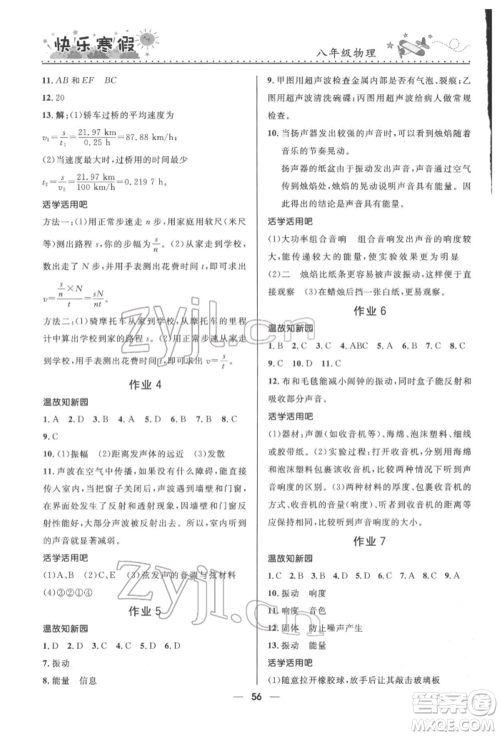 快乐寒假
八年级物理
11. AB 和 EF　BC
12. 20
13. 解:(1)轿车过桥的平均速度为
v₁=s/t₁=21.97 km/0.25 h=87.88 km/h
(2)当速度最大时,过桥的时间最少
t₂=s/v₂=21.97 km/100 km/h=0.219 7 h
活学活用吧
方法一:(1)用正常步速走 n 步,用刻度软尺(米尺
等)测出路程 s,求出步幅为 s/n　(2)从家到学校,
用正常步速走 N 步,并用手表测出花费时间 t
v=(s/n×N)/t=Ns/nt
方法二:(1)骑摩托车从家到学校,从摩托车里程
计中算出从家到学校的路程 s。　(2)用正常步速
从家走到学校,用手表测出花费时间 t　(3)v=s/t
作业 4
温故知新园
1. A　2. D　3. C　4. C　5. A　6. D　7. A　8. D
9. C
10. (2)距离发声体的远近　(3)发散
11. 声波在空气中传播,如果没有障碍,就能直接
传入室内,人在室内听到的声音响度就大,关
着窗户时,声波遇到障碍,通过墙壁和门窗传
入时,大部分声波被反射出去。所以,室内听到
的声音就显著减小。
活学活用吧
(1)A、B　(2)C、D　(3)弦发声的音调与弦材料
(4)③②①④
作业 5
温故知新园
1. D　2. D　3. C　4. A　5. A　6. C
7. 振动
8. 能量　信息
9. 甲图用超声波检查金属内部是否有气泡、裂痕;乙
图用超声波清洗碗碟;丙图用超声波为病人做常规
检查。
10. 当扬声器发出较强的声音时,看到的烛焰随
音乐的节奏晃动。
扬声器里的纸盆由于振动发出声音,通过空气
传到烛焰处,烛焰的晃动,说明烛焰获得能量。
由此得出的结论是声音具有能量。
活学活用吧
(1)大功率组合音响　组合音响发出声音的响度较
大,能传递较大的能量,使实验效果更加明显
(2)二　烛焰比纸条更易被声波振动,声波更便于
直接观察　(3)在蜡烛后挡一张白纸,更便于观察
作业 6
温故知新园
1. B　2. C　3. C　4. ABC　5. C　6. D　7. D　8. D
9. C　10. D　11. D
12. 布和毛毯能减小闹钟的振动,同时盒子能反射和
吸收部分声音。
活学活用吧
(1)器材:声源(如收音机)、海绵、泡沫塑料、大
纸盒(或木盒)　(2)实验过程:打开收音机,将海绵
和泡沫塑料分别挡在收音机的四周,倾听收音机的
声音响度;再将大纸盒(或木盒)罩在收音机的外
面,倾听收音机的声音响度　(3)分析比较:比较两
次听到的声音响度,则听到声音响度小的那次减噪
效果好。所以实施减噪时,应优先选用减噪效果
好的材料。
作业 7
温故知新园
1. C　2. D　3. B　4. D　5. C　6. B　7. D　8. B　9. C
10. 振动　响度　音色
12. 固体　防止噪声产生
13. 振动　能量
活学活用吧
(1)随意拉开橡胶球,放手后让其敲击玻璃板
56
zyjl.cn
zyjl.cn